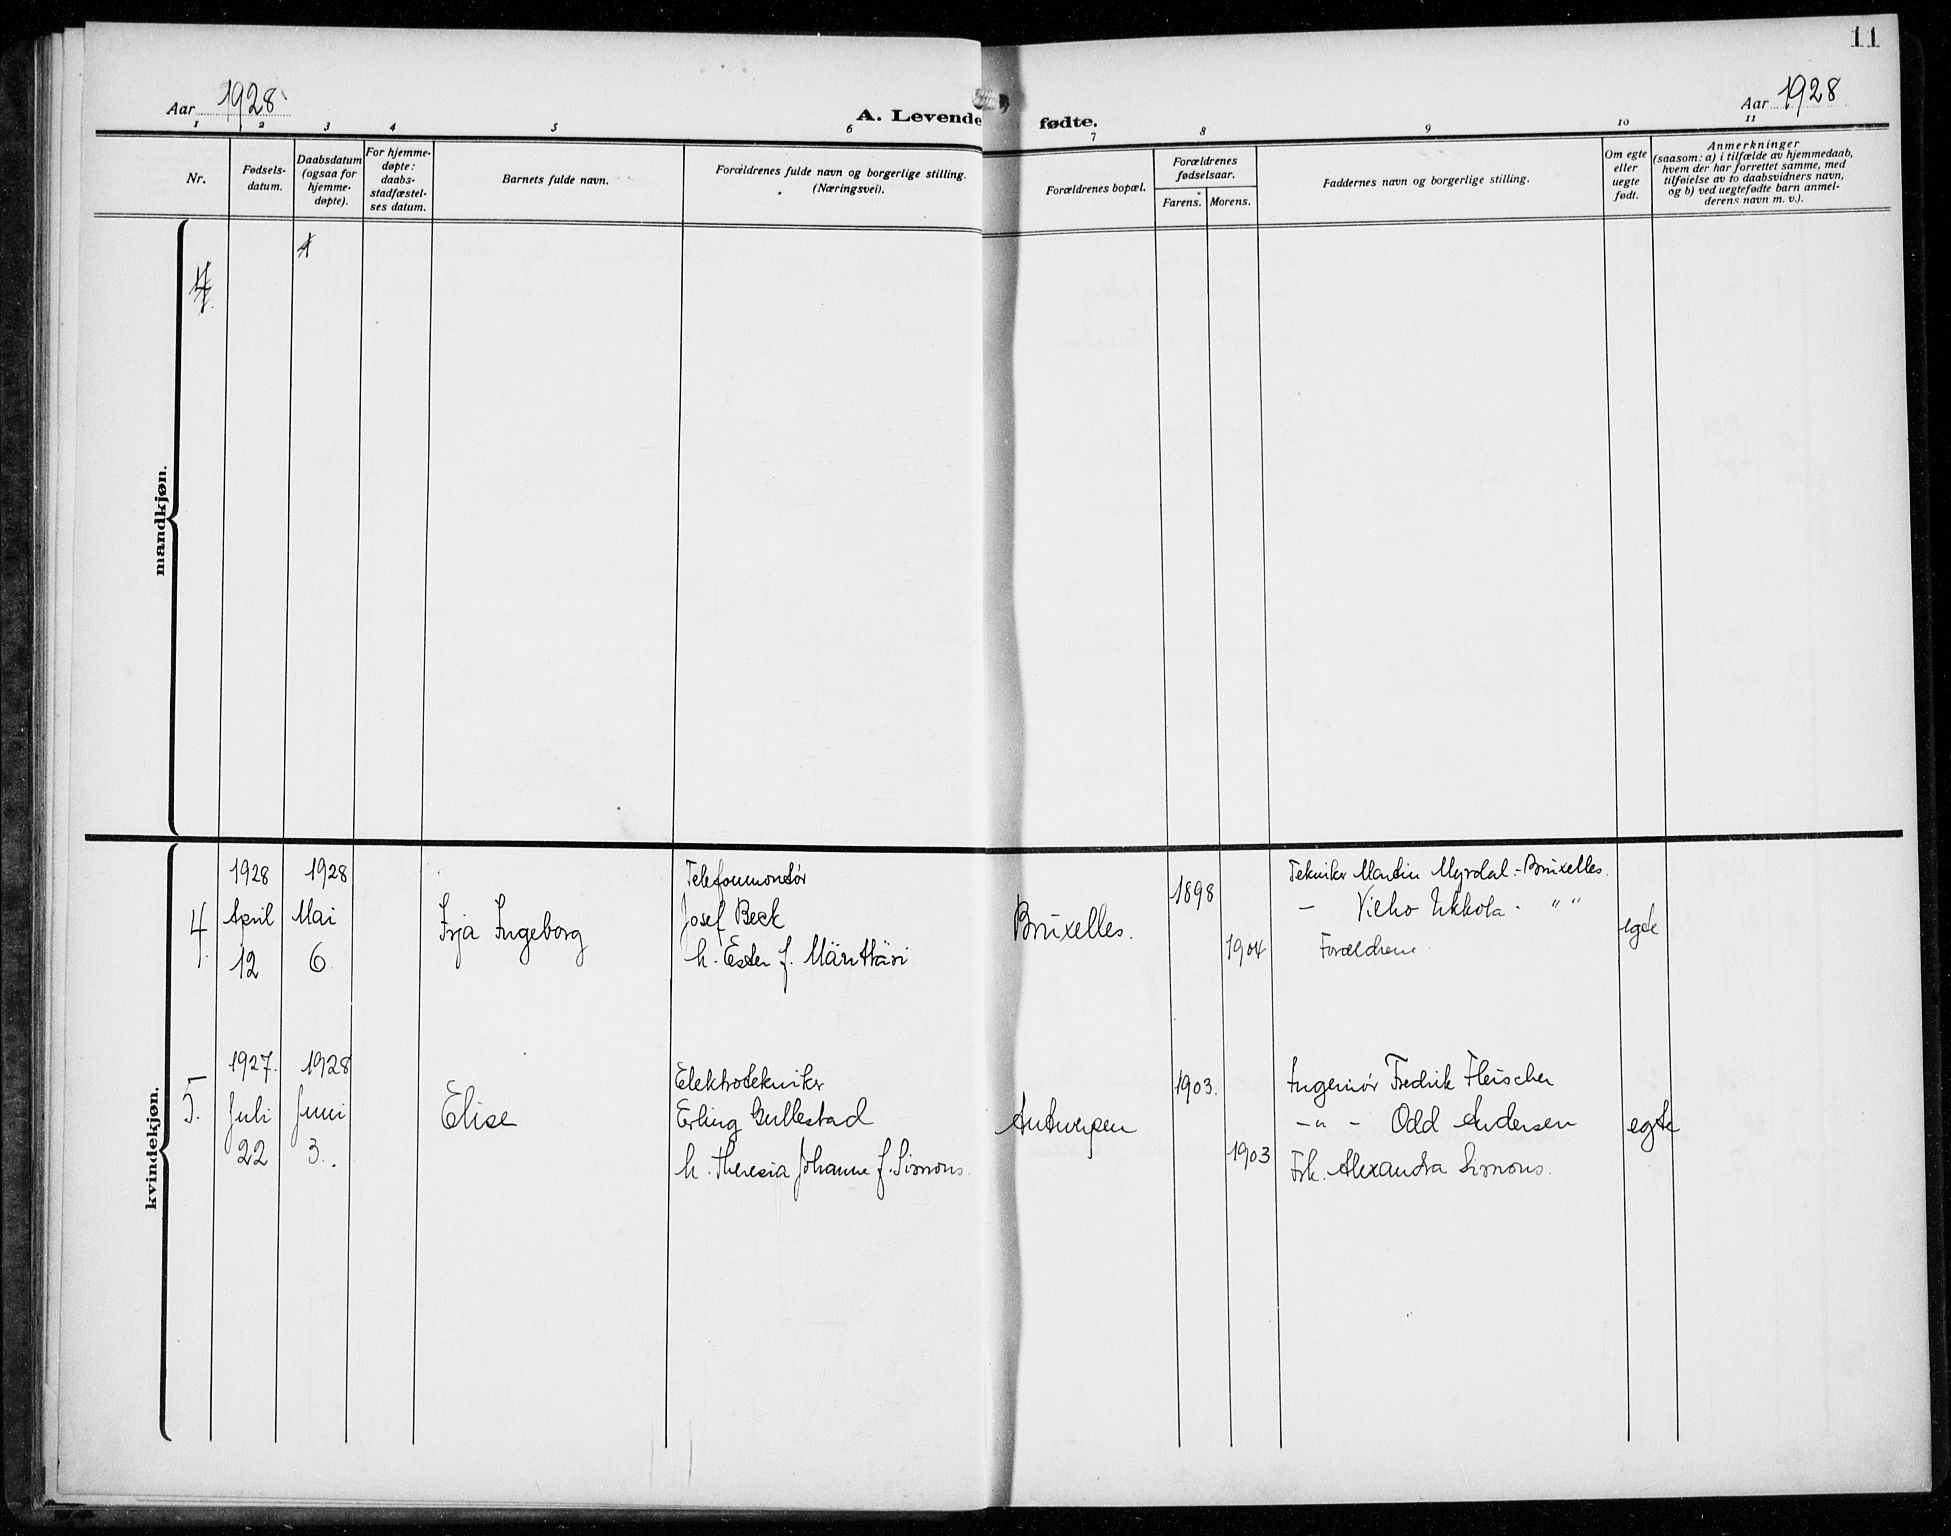 11
Aar 1928
A. Levende fødte.
Aar 1928
1 2 3 4 5 6 7 8 9 10 11
Nr.
Fødsels-
datum.
Daabsdatum
(ogsaa for
hjemme-
døpte).
For hjemme-
døpte:
daabs-
stadfæstel-
ses datum.
Barnets fulde navn.
Forældrenes fulde navn og borgerlige stilling.
(Næringsvei).
Forældrenes bopæl.
Forældrenes
fødselsaar.
Farens. Morens.
Faddernes navn og borgerlige stilling.
Om egte
eller
uegte
født.
Anmerkninger
(saasom: a) i tilfælde av hjemmedaab,
hvem der har forrettet samme, med
tilføielse av to daabsvidners navn,
og b) ved uegtefødte barn anmel-
derens navn m. v.).
mandkjøn.
4
kvindekjøn.
4.
1928
April
12
1928
Mai
6.
Irja Ingeborg
Telefonmontør
Josef Beck
h. Ester f. Märittäri
Bruxelles.
1898
1904
Tekniker Martin Myrdal - Bruxelles.
- Vilho Ukkola - " "
Forældrene.
egte
5.
1927.
Juli
22
1928
Juni
3.
Elise
Elektrotekniker
Erling Gullestad
h. Theresia Johanne f. Simons.
Antwerpen
1903.
1903
Ingeniør Fredrik Fleischer
-"- Odd Andersen
Frk. Alexandra Simons.
egte